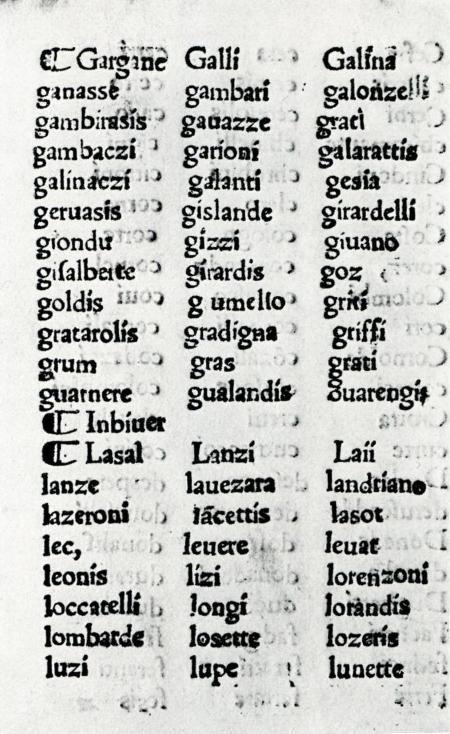 ⁋ Gargane Galli Galina
ganasse gambari galonzelli
gambirasis gauazze grati
gambaczi garioni galarattis
galinaczi galanti gesia
geruasis gislande girardelli
giondu gizzi giuano
giſalberte girardis goz
goldis gumello griti
gratarolis gradigna griffi
grum gras grati
guarnere gualandis guarengis
⁋ Inbiuer
⁋ Lasal Lanzi Laii
lanze lauezara landriano
lazeroni lācettis lasot
lec, leuere leuat
leonis lizi lorenzoni
loccatelli longi lorandis
lombarde losette lozeris
luzi lupe lunette